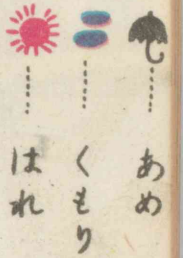 あめ
くもり
はれ